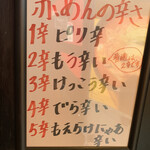 赤めんの辛さ
1辛 ピリ辛
2辛 もう辛い
3辛 けっこう辛い
4辛 でら辛い
5辛 もえらけにゃあ
辛い